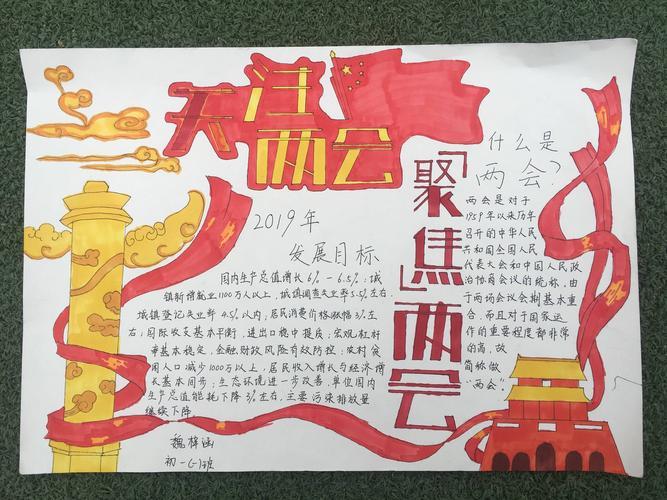 关注
两会
「聚焦」两会
2019年
发展目标
国内生产总值增长6%-6.5%;城
镇新增就业1100万人以上,城镇调查失业率5.5%左右,
城镇登记失业率4.5%以内;居民消费价格涨幅3%左
右;国际收支基本平衡,进出口稳中提质;宏观杠杆
率基本稳定,金融财政风险有效防控;农村贫
困人口减少1000万以上,居民收入增长与经济增
长基本同步;生态环境进一步改善,单位国内
生产总值能耗下降3%左右,主要污染排放量
继续下降
魏梓涵
初一(6)班
什么是
两会?
两会是对于
1959年以来历年
召开的中华人民
共和国全国人民
代表大会和中国人民政
治协商会议的统称,由
于两场会议会期基本重
合,而且对于国家运
作的重要程度都非常
的高,故
简称做
“两会”。